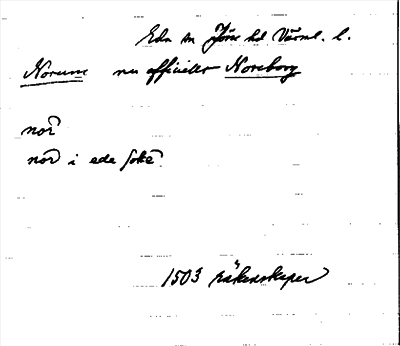 Eda sn Jösse hd Värml. l.
Norum nu officiellt Noreborg
nor
nor i eda soke
1503 räkenskaper